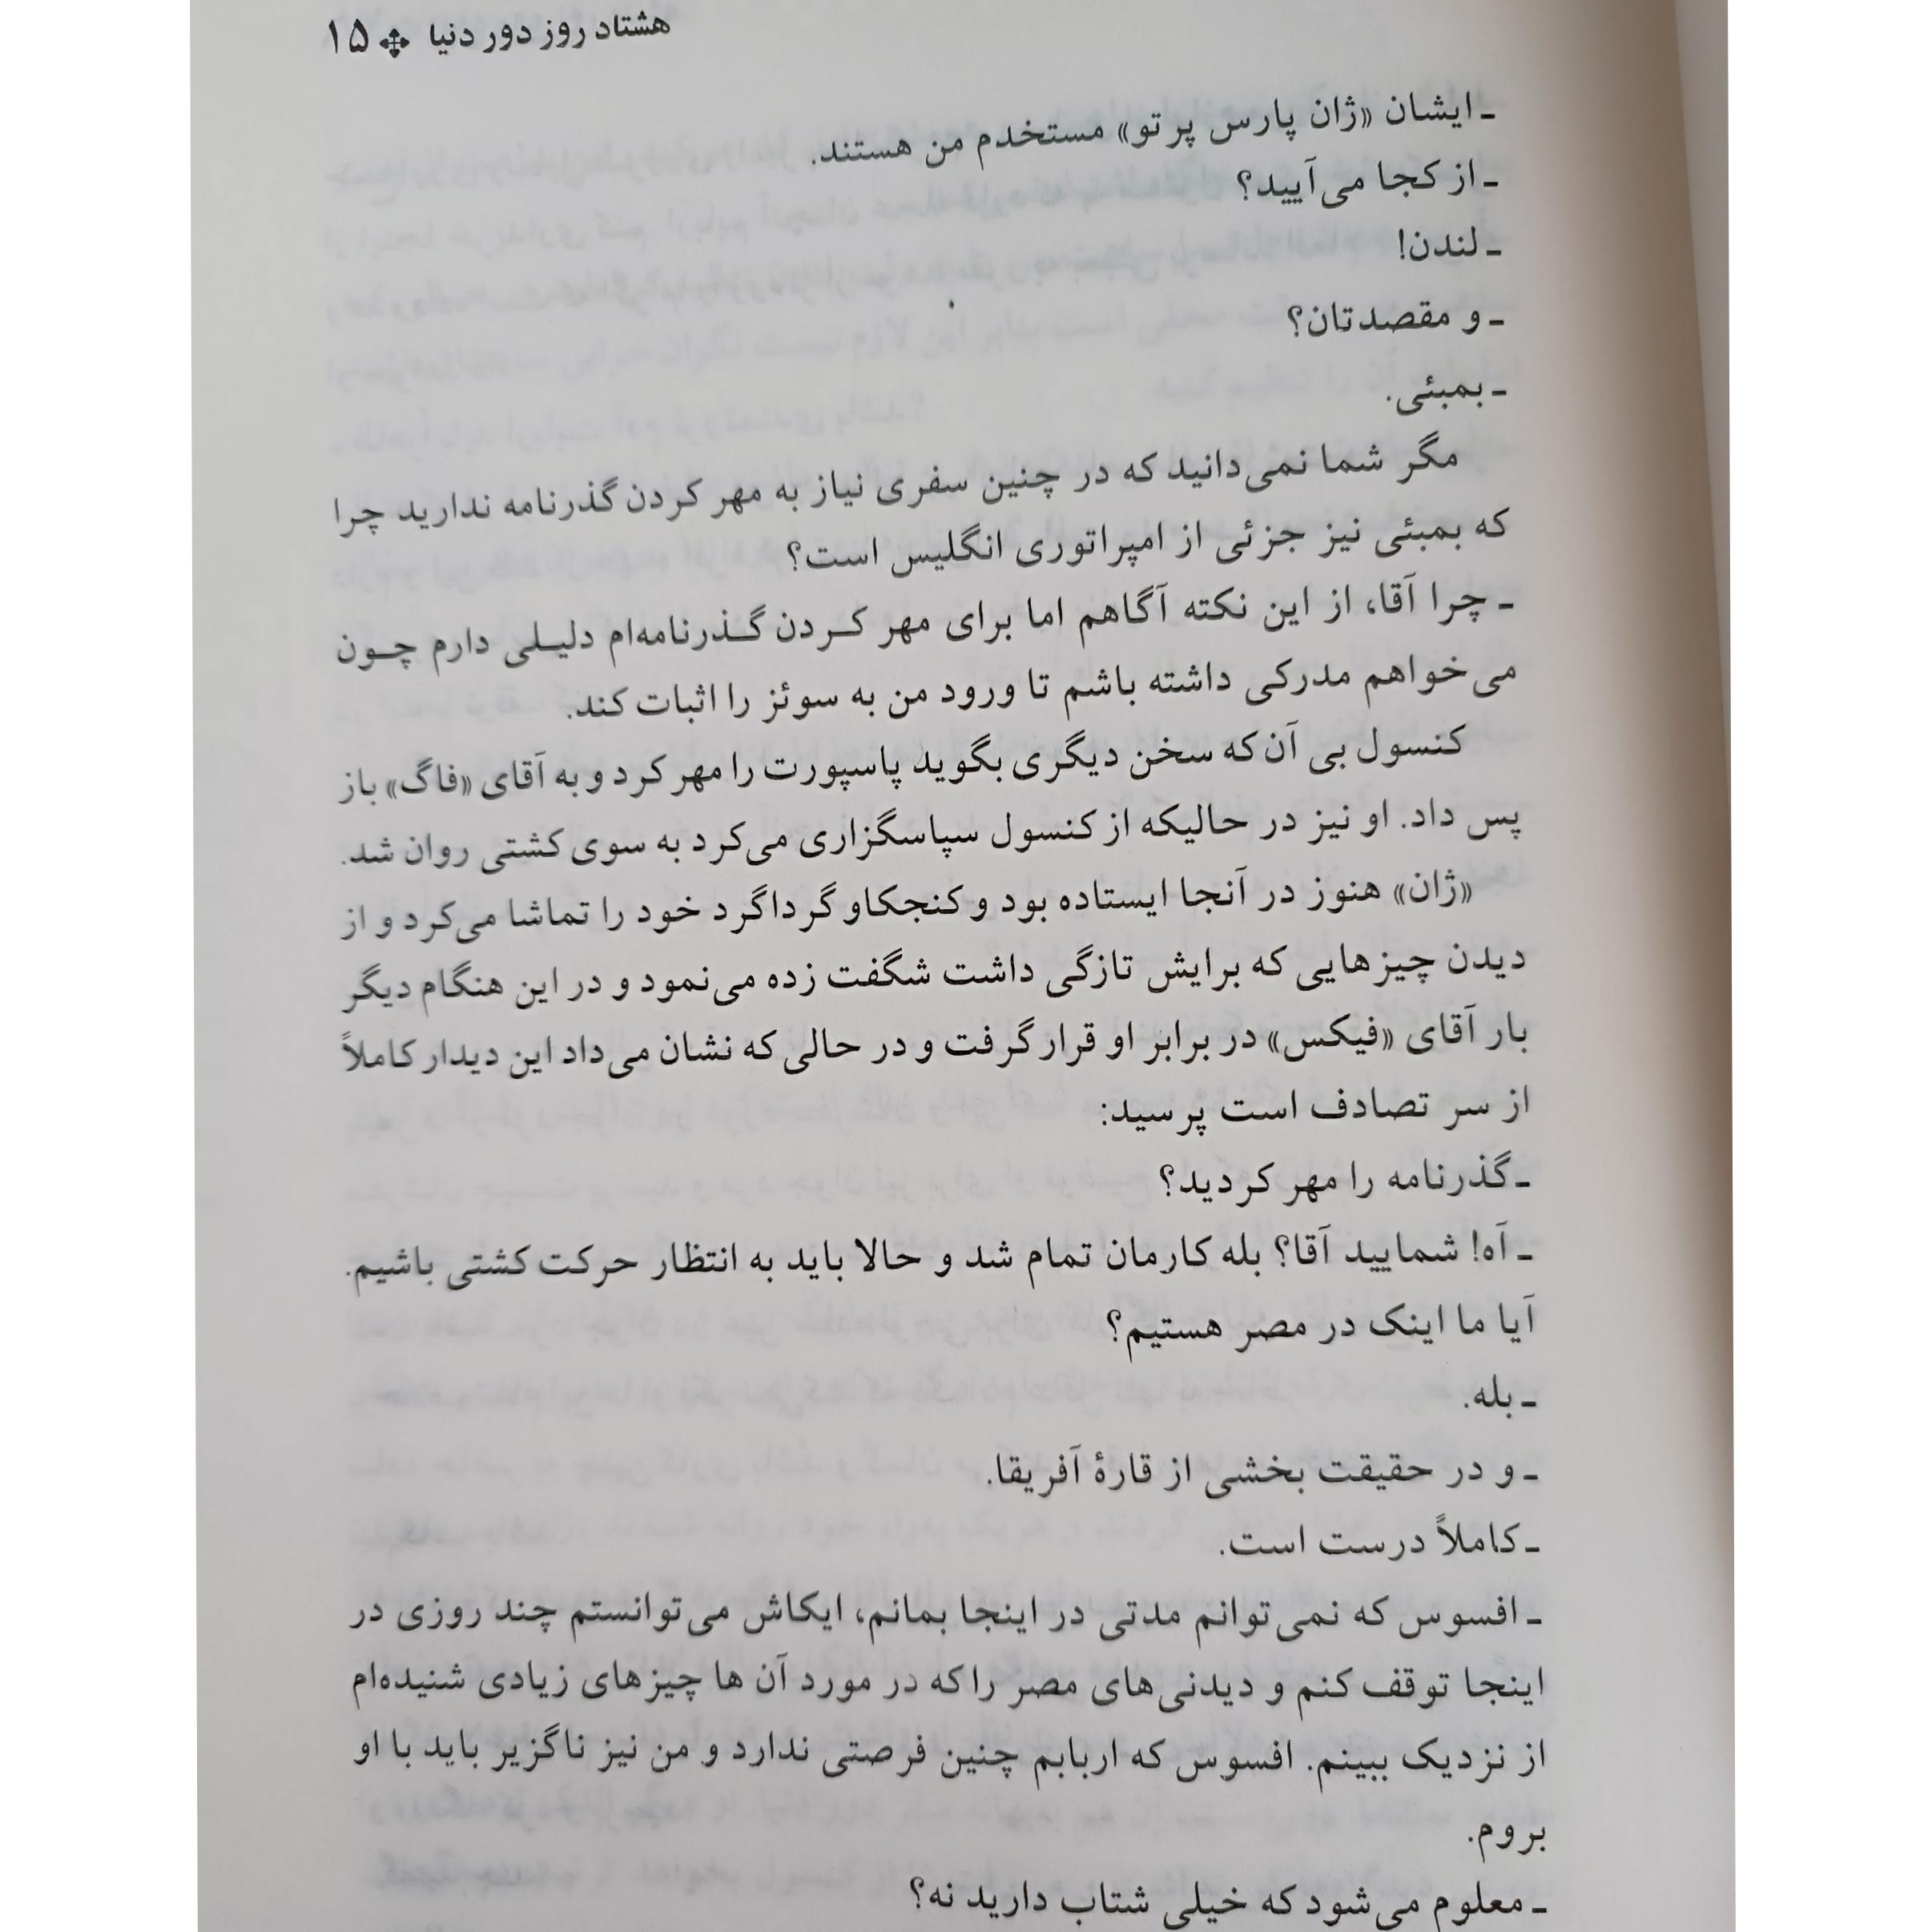 هشتاد روز دور دنیا ۱۵
ـ ایشان «ژان پارس پرتو» مستخدم من هستند.
ـ از کجا می‌آیید؟
ـ لندن!
ـ و مقصدتان؟
ـ بمبئی.
مگر شما نمی‌دانید که در چنین سفری نیاز به مهر کردن گذرنامه ندارید چرا
که بمبئی نیز جزئی از امپراتوری انگلیس است؟
ـ چرا آقا، از این نکته آگاهم اما برای مهر کردن گذرنامه‌ام دلیلی دارم چون
می‌خواهم مدرکی داشته باشم تا ورود من به سوئز را اثبات کند.
کنسول بی آن‌که سخن دیگری بگوید پاسپورت را مهر کرد و به آقای «فاگ» باز
پس داد. او نیز در حالیکه از کنسول سپاسگزاری می‌کرد به سوی کشتی روان شد.
«ژان» هنوز در آنجا ایستاده بود و کنجکاو گرداگرد خود را تماشا می‌کرد و از
دیدن چیزهایی که برایش تازگی داشت شگفت زده می‌نمود و در این هنگام دیگر
بار آقای «فیکس» در برابر او قرار گرفت و در حالی که نشان می‌داد این دیدار کاملاً
از سر تصادف است پرسید:
ـ گذرنامه را مهر کردید؟
ـ آه! شمایید آقا؟ بله کارمان تمام شد و حالا باید به انتظار حرکت کشتی باشیم.
آیا ما اینک در مصر هستیم؟
ـ بله.
ـ و در حقیقت بخشی از قارهٔ آفریقا.
ـ کاملاً درست است.
ـ افسوس که نمی‌توانم مدتی در اینجا بمانم، ایکاش می‌توانستم چند روزی در
اینجا توقف کنم و دیدنی‌های مصر را که در مورد آن ها چیزهای زیادی شنیده‌ام
از نزدیک ببینم. افسوس که اربابم چنین فرصتی ندارد و من نیز ناگزیر باید با او
بروم.
ـ معلوم می‌شود که خیلی شتاب دارید نه؟